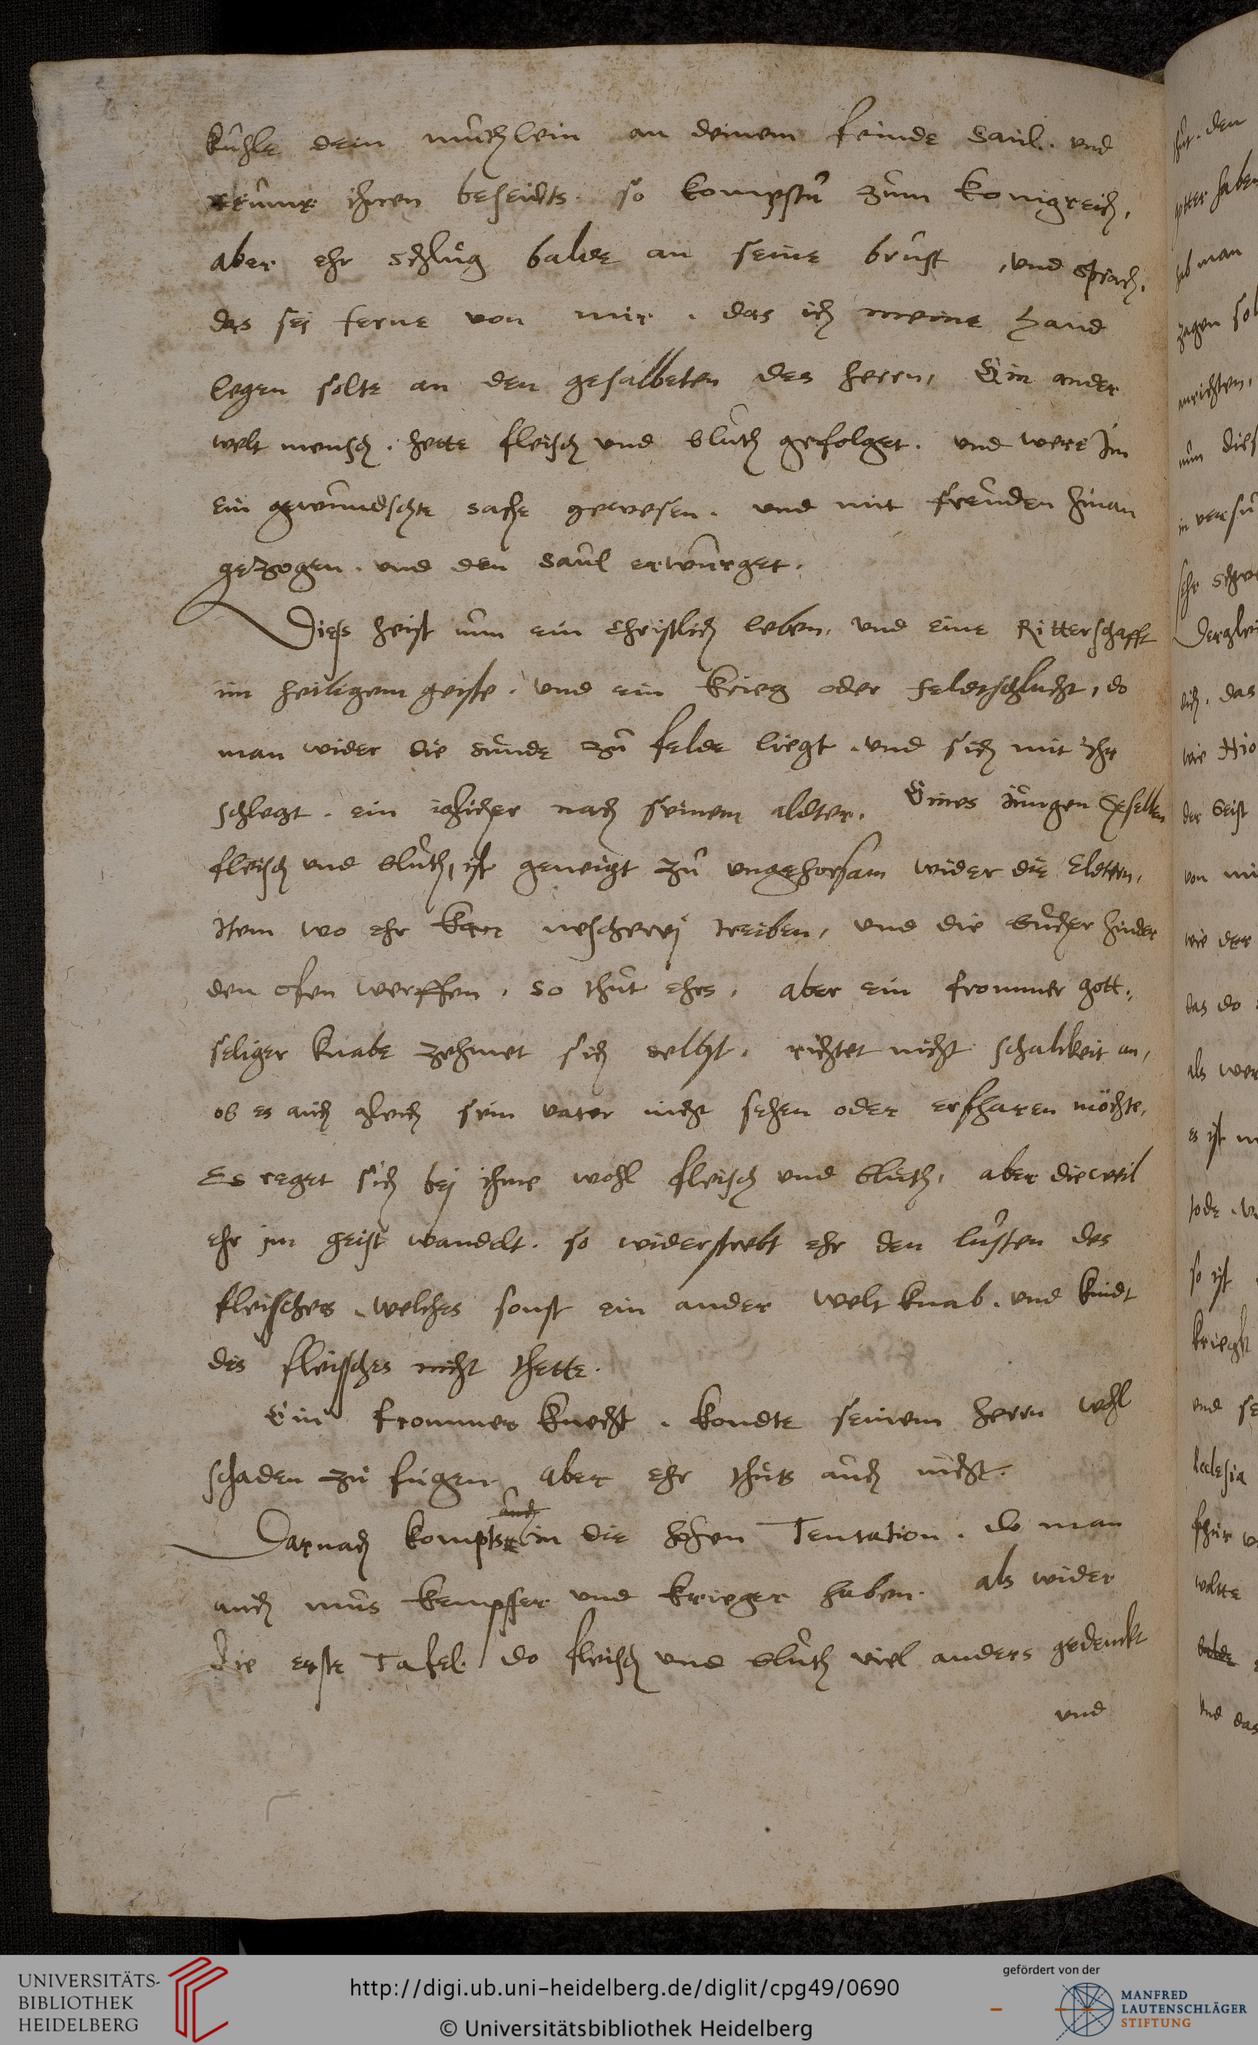 kuhle dein muthlein an deinem feinde Saul. und
reume ihnen beseidts. so kompstu zum konigreich,
aber ehr schlug balde an seine brust, und sprach,
das sej ferne von mir. das ich meine Hand
legen solte an den gesalbeten des herrn, Ein ander
welt mensch. hette fleisch und bluth gefolget. und were Im
ein gewundschte sache gewesen. und mit freuden hinan
gezogen. und den Saul erwurget.
Dieß heist nun ein Christlich leben, und eine Ritterschafft
im heiligem geiste. und ein krieg oder feldtschlacht, do
man wider die sunde zu felde liegt. und sich mit ihr
schlegt. ein iglicher nach seinem aldter. Eines iungen gesellen
fleisch und bluth, ist geneigt zu ungehorsam wider die Eldtern,
Item wo ehr kan nescherej treiben, und die bucher hinder
den ofen werffen. so thut ehrs, aber ein frommer gott-
seliger knabe zehmet sich selbst. richtet nicht schalckeit an,
ob es auch gleich sein vater nicht sehen oder erfharen möchte,
Es reget sich bej ihme wohl fleisch und bluth, aber dieweil
ehr im geist wandelt. so widerstrebt ehr den lusten des
fleisches. welches sonst ein ander welt knab. und kindt
des fleisches nicht thette.
Ein frommer knecht. kondte seinem herrn wohl
schaden zu fugen aber ehr thuts auch nicht.
Darnach kompts in die hohen Tentation. do man
auch mus kempffer und krieger haben. als wider
die erste Tafel. do fleisch und bluth viel anders gedenckt
und
UNIVERSITÄTS-
BIBLIOTHEK
HEIDELBERG
http://digi.ub.uni-heidelberg.de/diglit/cpg49/0690
© Universitätsbibliothek Heidelberg
gefördert von der
MANFRED
LAUTENSCHLÄGER
STIFTUNG